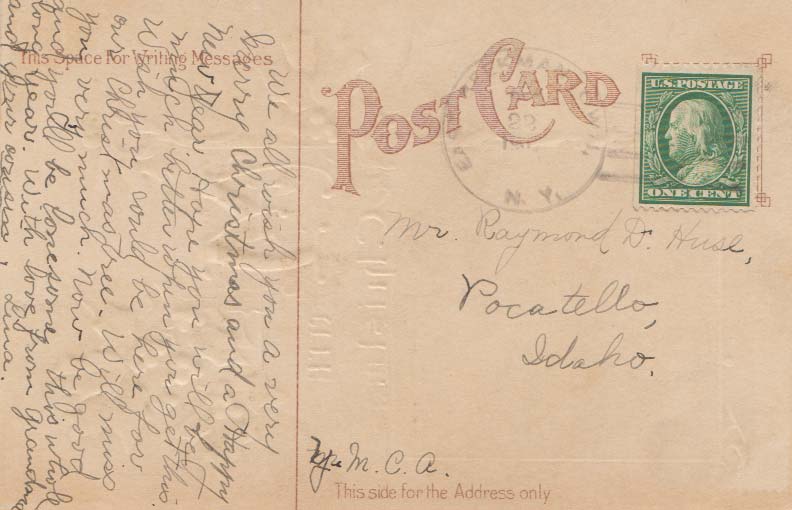 This Space for Writing Messages
POST CARD
U.S. POSTAGE
ONE CENT
23
N. Y.
Mr. Raymond D. Huse,
Pocatello,
Idaho.
Y. M. C. A.
This side for the Address only
We all wish you a very
Merry Christmas and a Happy
New Year. Hope you will be
much better when you get this.
Wish you could be here for
our Christmas tree. Will miss
you very much. Now be good
and you'll be lonesome this whole
long year. With love from Grandma
and Lena.